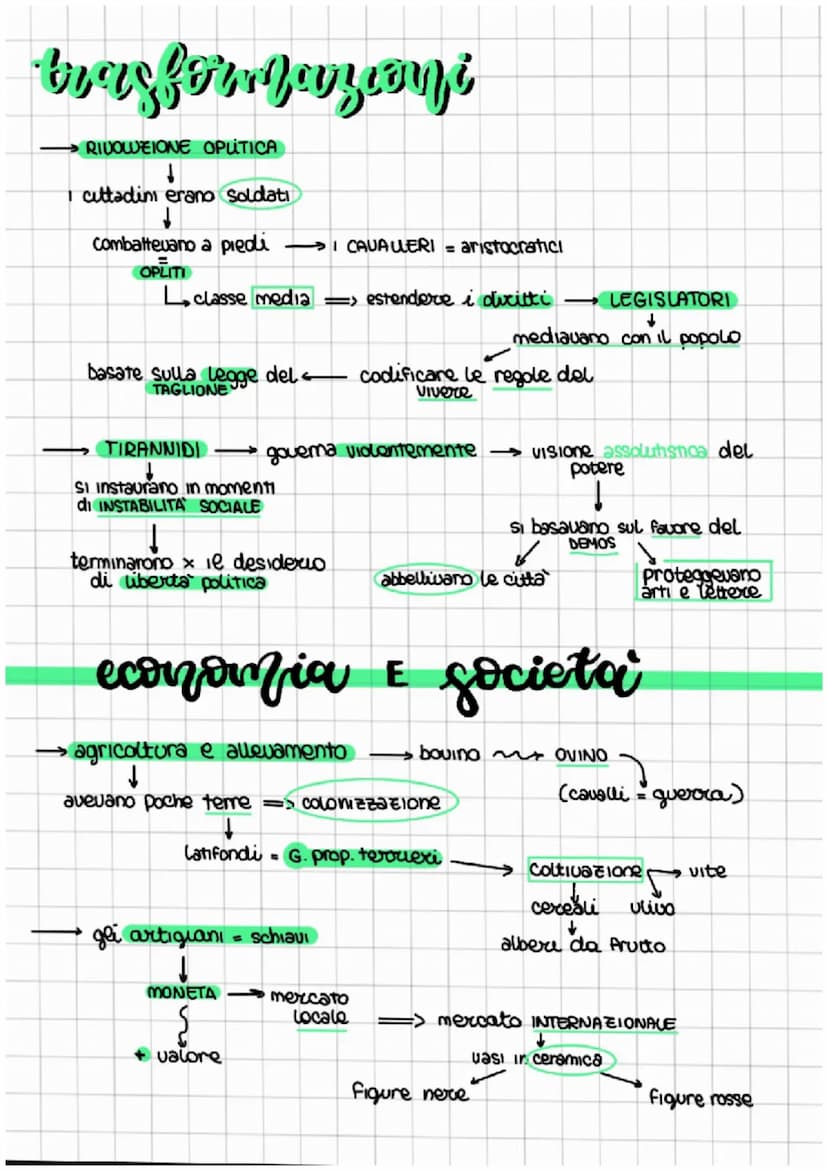 trasformazioni
→ RIVOLUZIONE OPLITICA
↓
i cittadini erano soldati
↓
combattevano a piedi → i CAVALLERI = aristocratici
=
OPLITI
↳ classe media => estendere i diritti → LEGISLATORI
↓
mediavano con il popolo
basate sulla legge del ← codificare le regole del
TAGLIONE vivere
→ TIRANNIDI → governa violentemente → visione assolutistica del
potere
↓
si instaurano in momenti
di INSTABILITA' SOCIALE
si basavano sul favore del
DEMOS
↓
terminarono x il desiderio
di liberta' politica
abbellivano le citta'
proteggevano
arti e lettere
economia E societa'
→ agricoltura e allevamento → bovino → OVINO
↓
avevano poche terre => colonizzazione
(cavalli = guerra)
↓
latifondi = G. prop. terrieri → coltivazione → vite
cereali ulivo
↓
→ gli artigiani = schiavi
alberi da frutto
↓
MONETA → mercato
locale => mercato INTERNAZIONALE
↓
+ valore
vasi in ceramica
figure nere figure rosse